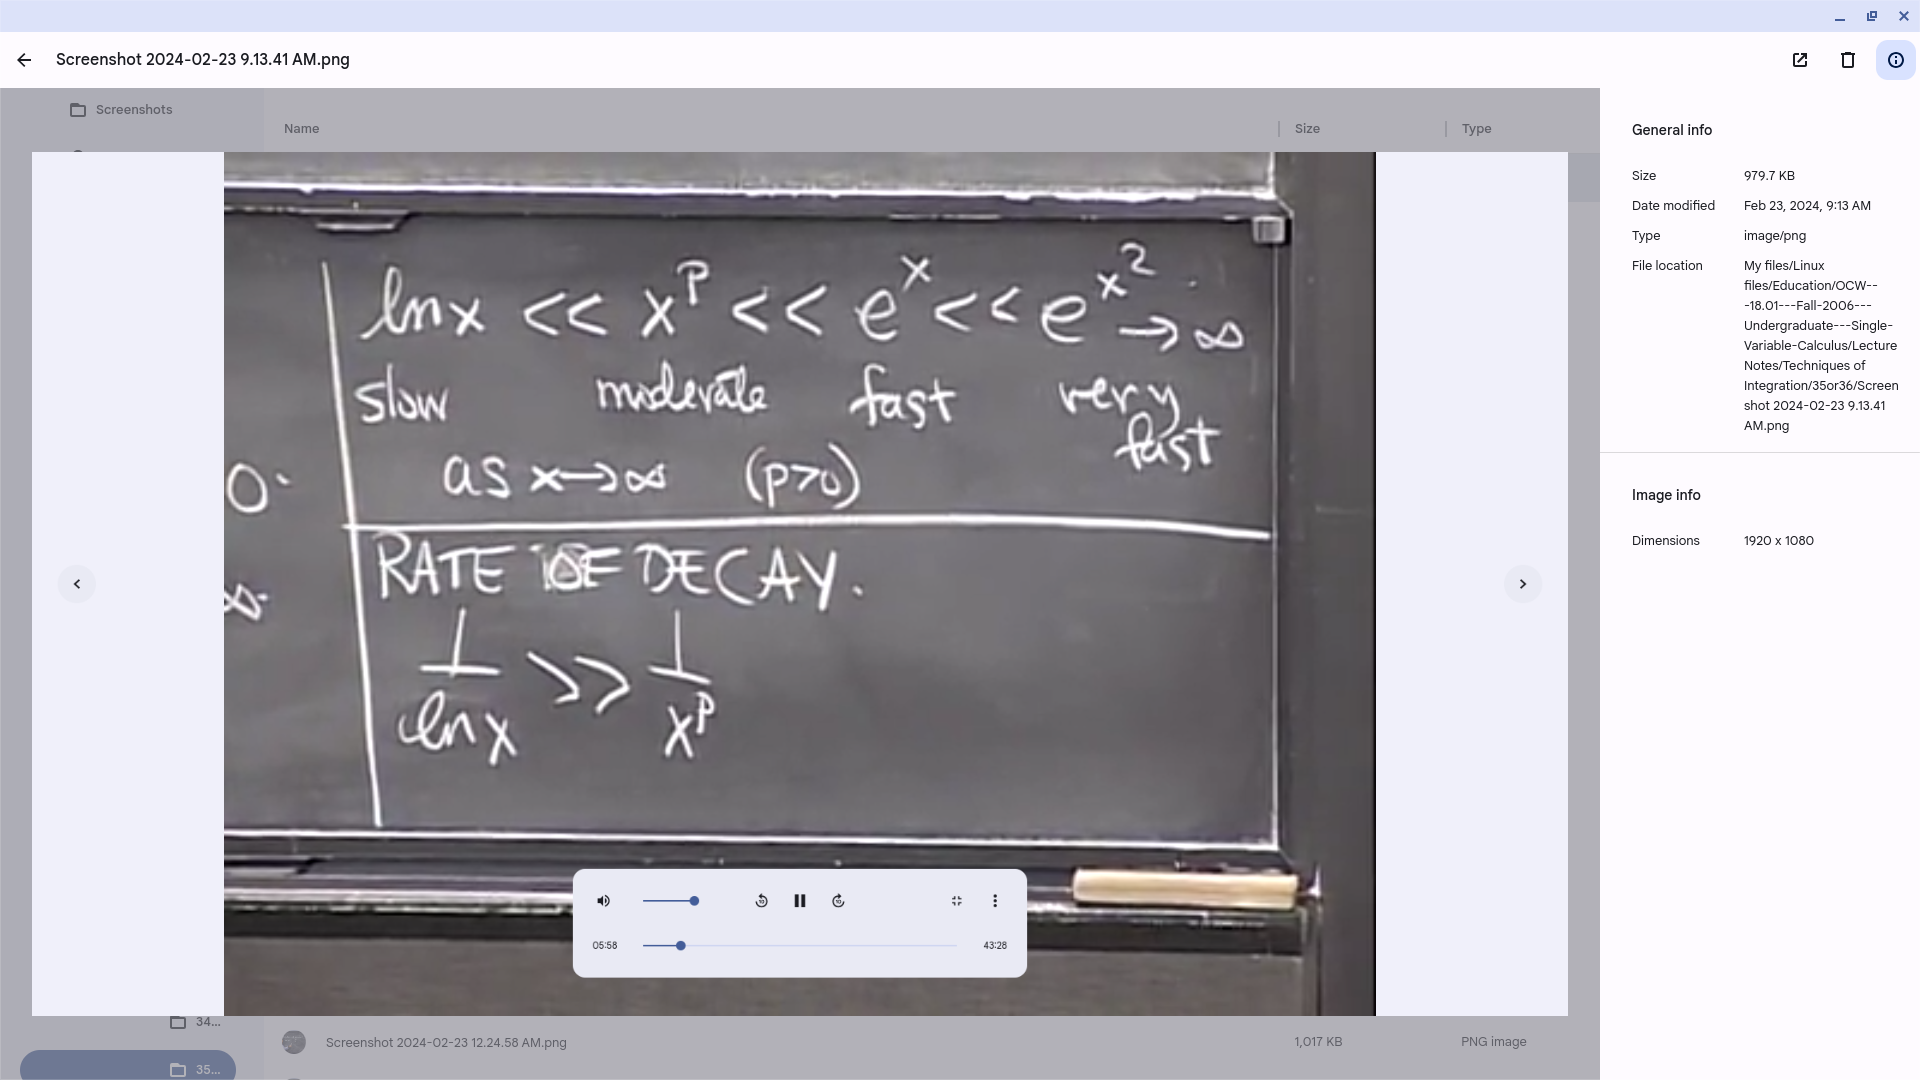 Screenshot 2024-02-23 9.13.41 AM.png
Screenshots
Name
Size
Type
ln x << x^p << e^x << e^x^2 → ∞
slow moderate fast very
fast
as x→∞ (p>0)
0.
∞.
RATE OF DECAY.
1/ln x >> 1/x^p
05:58
43:28
34...
Screenshot 2024-02-23 12.24.58 AM.png
1,017 KB
PNG image
35...
General info
Size 979.7 KB
Date modified Feb 23, 2024, 9:13 AM
Type image/png
File location My files/Linux
files/Education/OCW--
-18.01---Fall-2006---
Undergraduate---Single-
Variable-Calculus/Lecture
Notes/Techniques of
Integration/35or36/Screen
shot 2024-02-23 9.13.41
AM.png
Image info
Dimensions 1920 x 1080